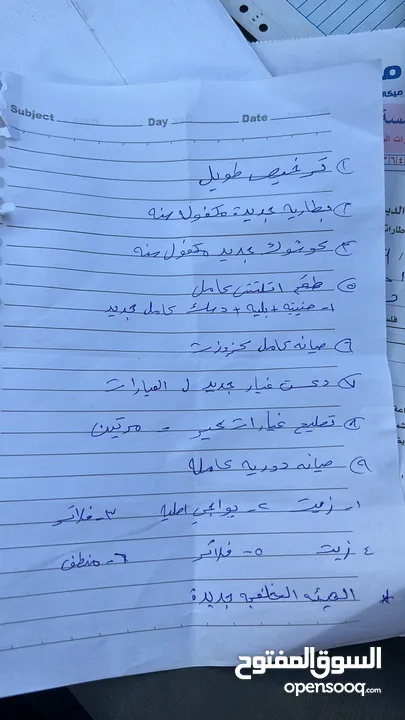 Subject Day Date
١) ترخيص طويل
٢) بطارية جديدة مكفوله سنه
٣) كوشوك جديد مكفول سنه
٥) طقم اكلتش كامل
١- صنيبه + بليه + دسك كامل جديد
٦) صيانه كامل
٧) دعست غيار جديد ل الغيارات
٨) تصليح غيارات جير - مرتين
٩) صيانه دوريه كامله
١- زيت ٢- بواجي اصليه ٣- فلاتر
٤ زيت ٥- فلاتر ٦- منظف
* الهيئه الخلفيه جديدة
السوق المفتوح
opensooq.com